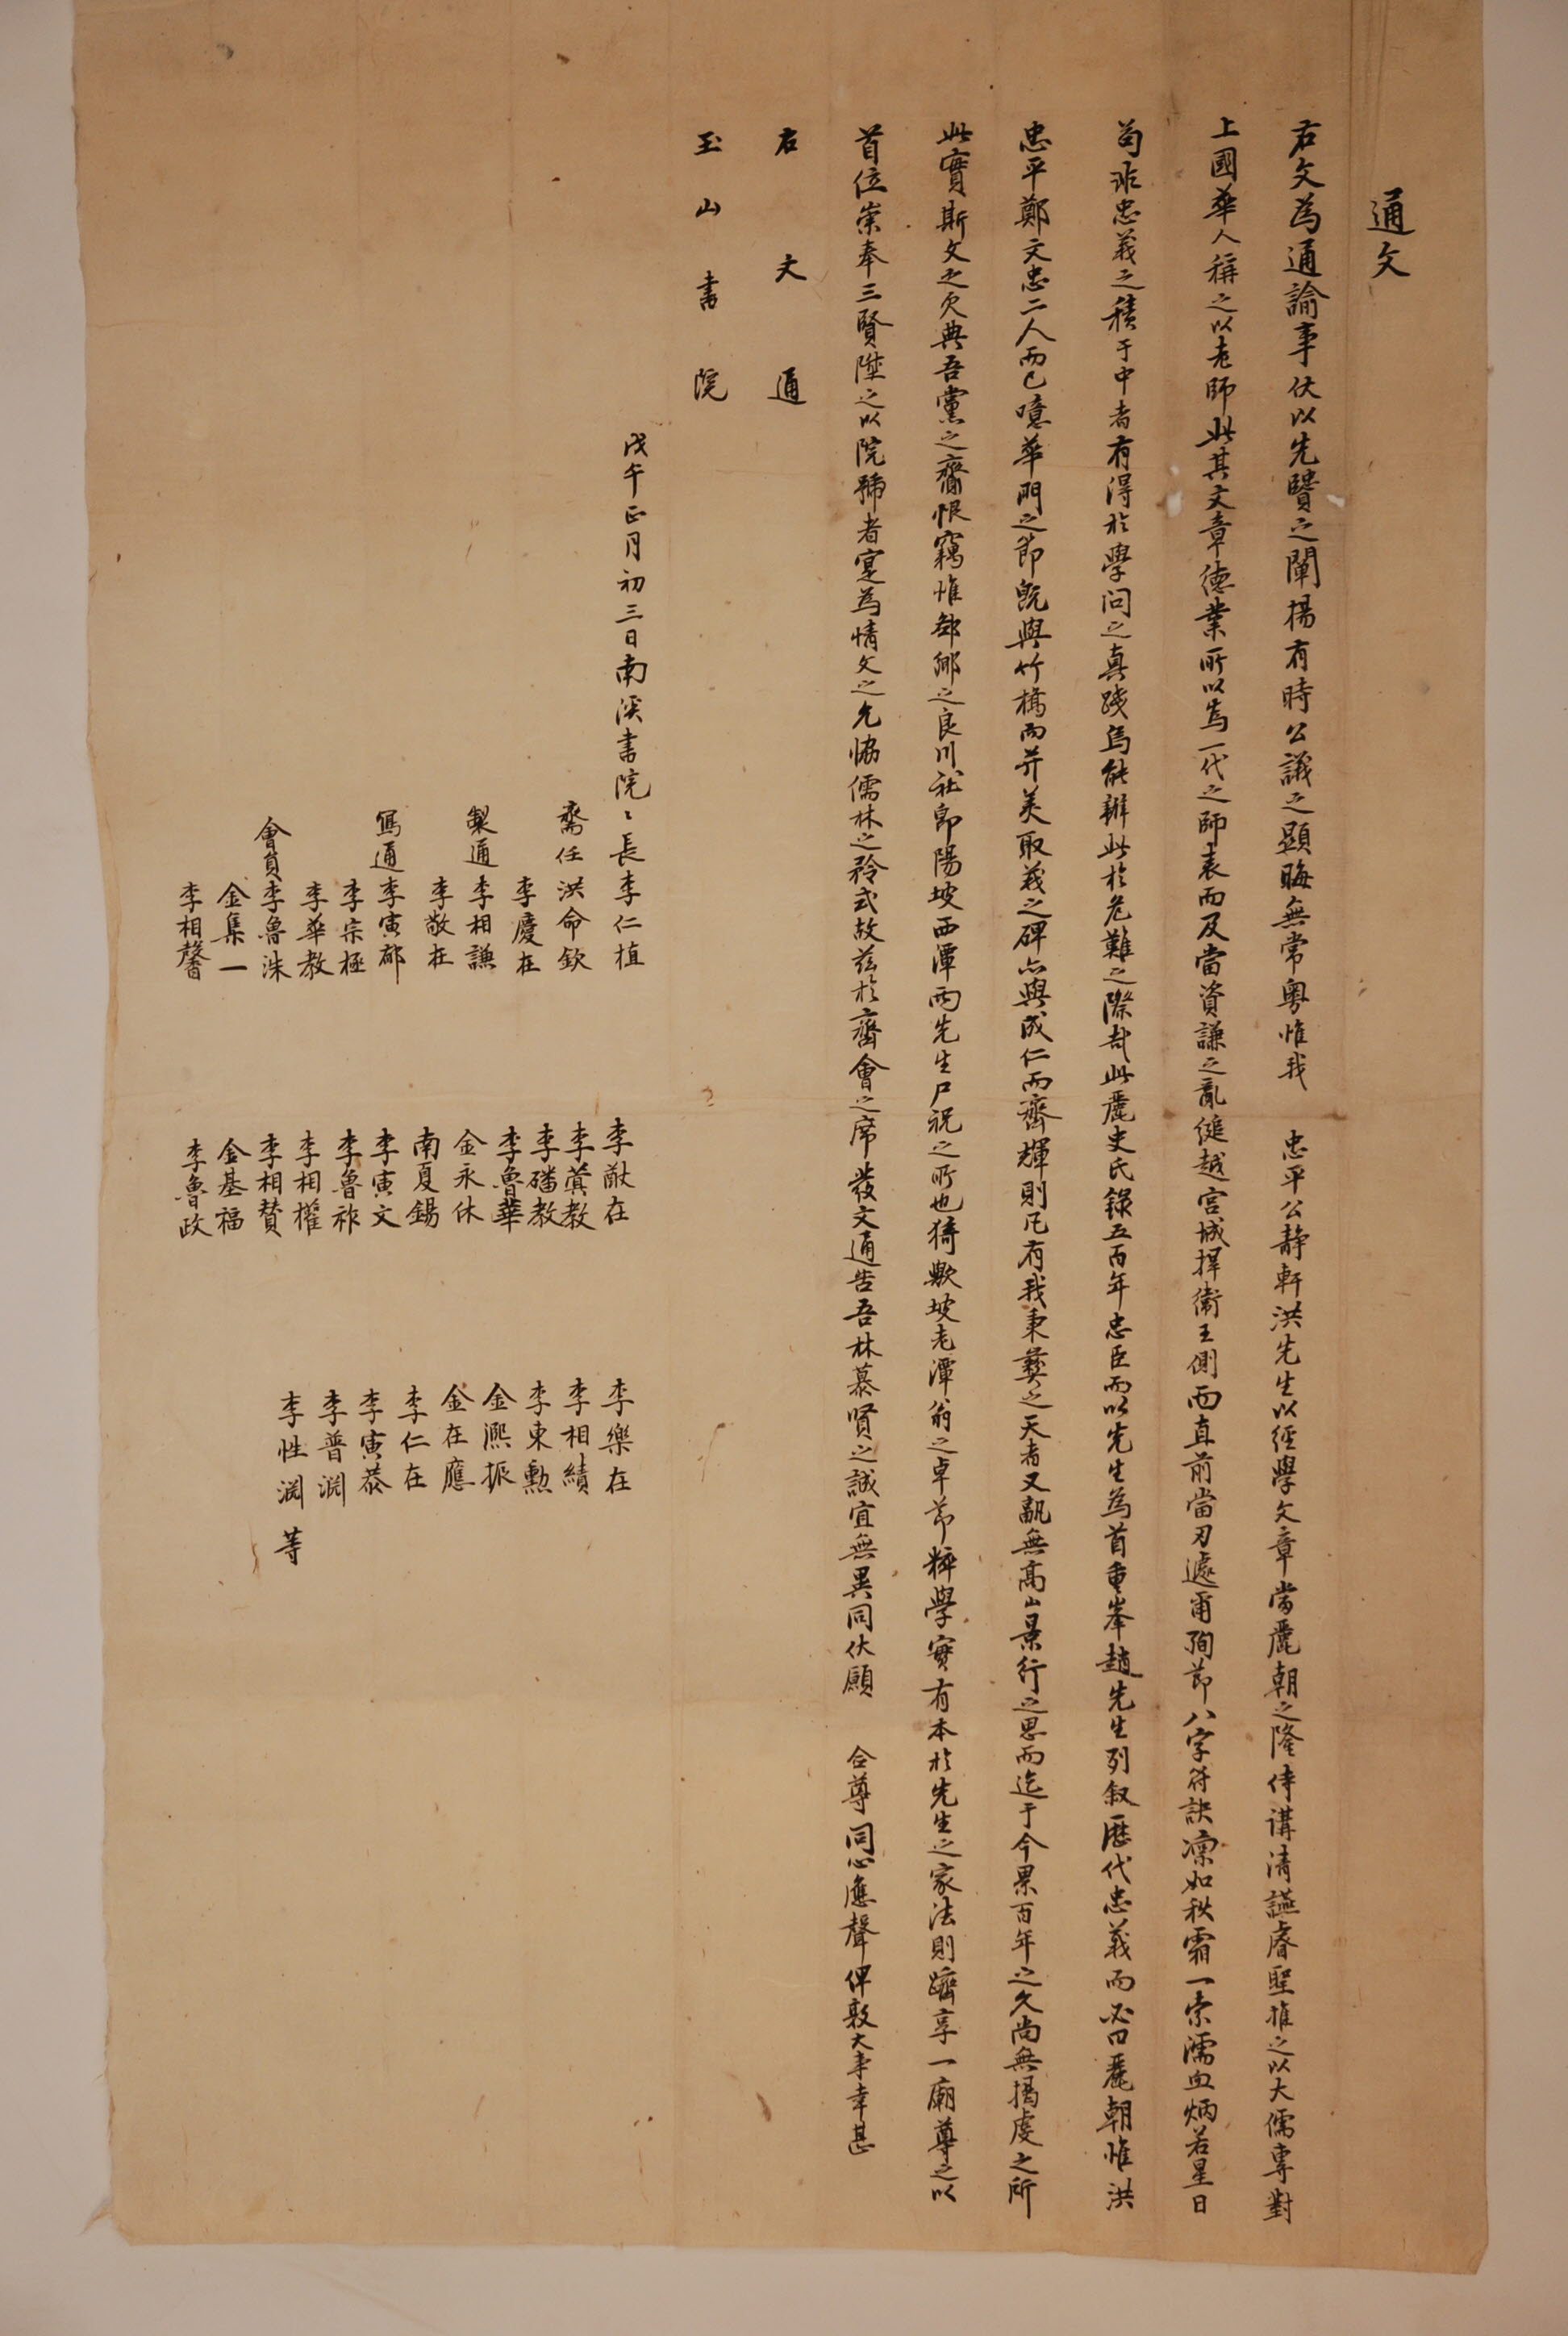 通文
右文爲通諭事伏以先贒之闡揚有時公議之顯晦無常粤惟我 忠平公静軒洪先生以經學文章當麗朝之隆侍講清讌睿聖推之以大儒專對
上國華人稱之以老師此其文章德業所以爲一代之師表而及當資謙之亂縋越宮城捍衛王側而直前當刃遽甭殉節八字符訣凜如秋霜一索濡血炳若星日
苟非忠義之積于中者有得於學问之真踐焉能辦此於危難之際哉此麗史氏錄五百年忠臣而以先生為首重峯趙先生列叙歷代忠義而必曰麗朝惟洪
忠平鄭文忠二人而已噫華門之節旣與竹橋而并美取義之碑亦與成仁而齊輝則凡有我秉彝之天者又孰無高山景行之思而迄于今累百年之久尚無揭虔之所
此實斯文之欠典吾黨之齎恨竊惟鄙鄉之良川社卽陽坡西潭兩先生尸祝之所也猗歟坡老潭翁之卓節粹學實有本於先生之家法則躋享一廟尊之以
首位崇奉三賢陞之以院號者寔為情文之允恊儒林之矜式故茲於齊會之席發文通告吾林慕贤之誠宜無異同伏願 佥尊同心應聲俾敦大事幸甚
右文通
玉山書院
戊午正月初三日南溪書院〻長李仁植 李猷在 李樂在
齋任洪命欽 李冀教 李相績
李慶在 李磻教 李東勳
製通李相謙 李魯華 金熙振
李敬在 金永休 金在應
南夏錫 李仁在
寫通李寅郁 李寅文 李寅恭
李宗極 李魯祚 李普淵
李華教 李相權 李性淵 等
會員李魯洙 李相賛
金集一 金基福
李相馨 李魯政